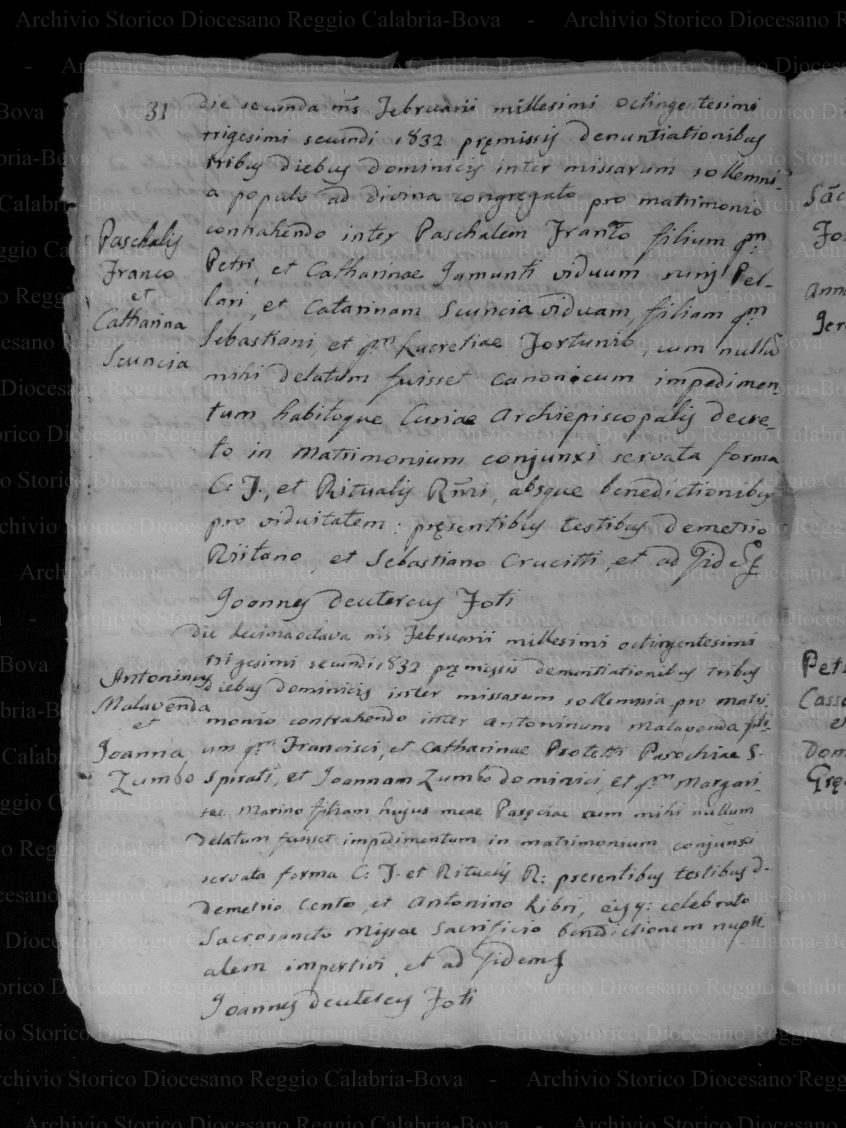 31
Die secunda m̄s Februarii millesimi octingentesimi
trigesimi secundi 1832 pręmissis denuntiationibus
tribus diebus dominicis inter missarum sollemni-
a populo ad divina congregato pro matrimonio
contrahendo inter Paschalem Franco filium qm̄
Petri, et Catharinae Jamunti viduum
lari, et Catarinam Scuncia viduam, filiam qm̄
Sebastiani, et qm̄ Lucretiae Fortunio, cum nullū
mihi delatum fuisset canonicum impedimen-
tum habitoque Curiae Archiepiscopalis decre-
to in Matrimonium conjunxi servata forma
C. T., et Ritualis Rm̄i, absque benedictionibus
pro viduitatem: pręsentibus testibus Demetrio
Riitano, et Sebastiano Crucitti, et ad fidem
Joannes Deutereus Foti
Paschalis
Franco
et
Catharina
Scuncia
Die decimaoctava m̄s Februarii millesimi octingentesimi
trigesimi secundi 1832 pręmissis denuntiationibus tribus
diebus dominicis inter missarum sollemnia pro matri-
monio contrahendo inter Antoninum Malavenda fili-
um qm̄ Francisci, et Catharinae Protetti Parochiae S.
Spirati, et Joannam Zumbo Dominici, et qm̄ Margari-
tae Marino filiam hujus meae cum mihi nullum
delatum fuisset impedimentum in matrimonium conjunxi
servata forma C. T. et Ritualis R: presentibus testibus D.
Demetrio Cento, et Antonino Libri, eisq: celebrato
Sacrosancto Missae Sacrificio benedictionem nupti-
alem impertivi, et ad fidem
Joannes Deutereus Foti
Antoninus
Malavenda
et
Joanna
Zumbo
Archivio Storico Diocesano Reggio Calabria-Bova